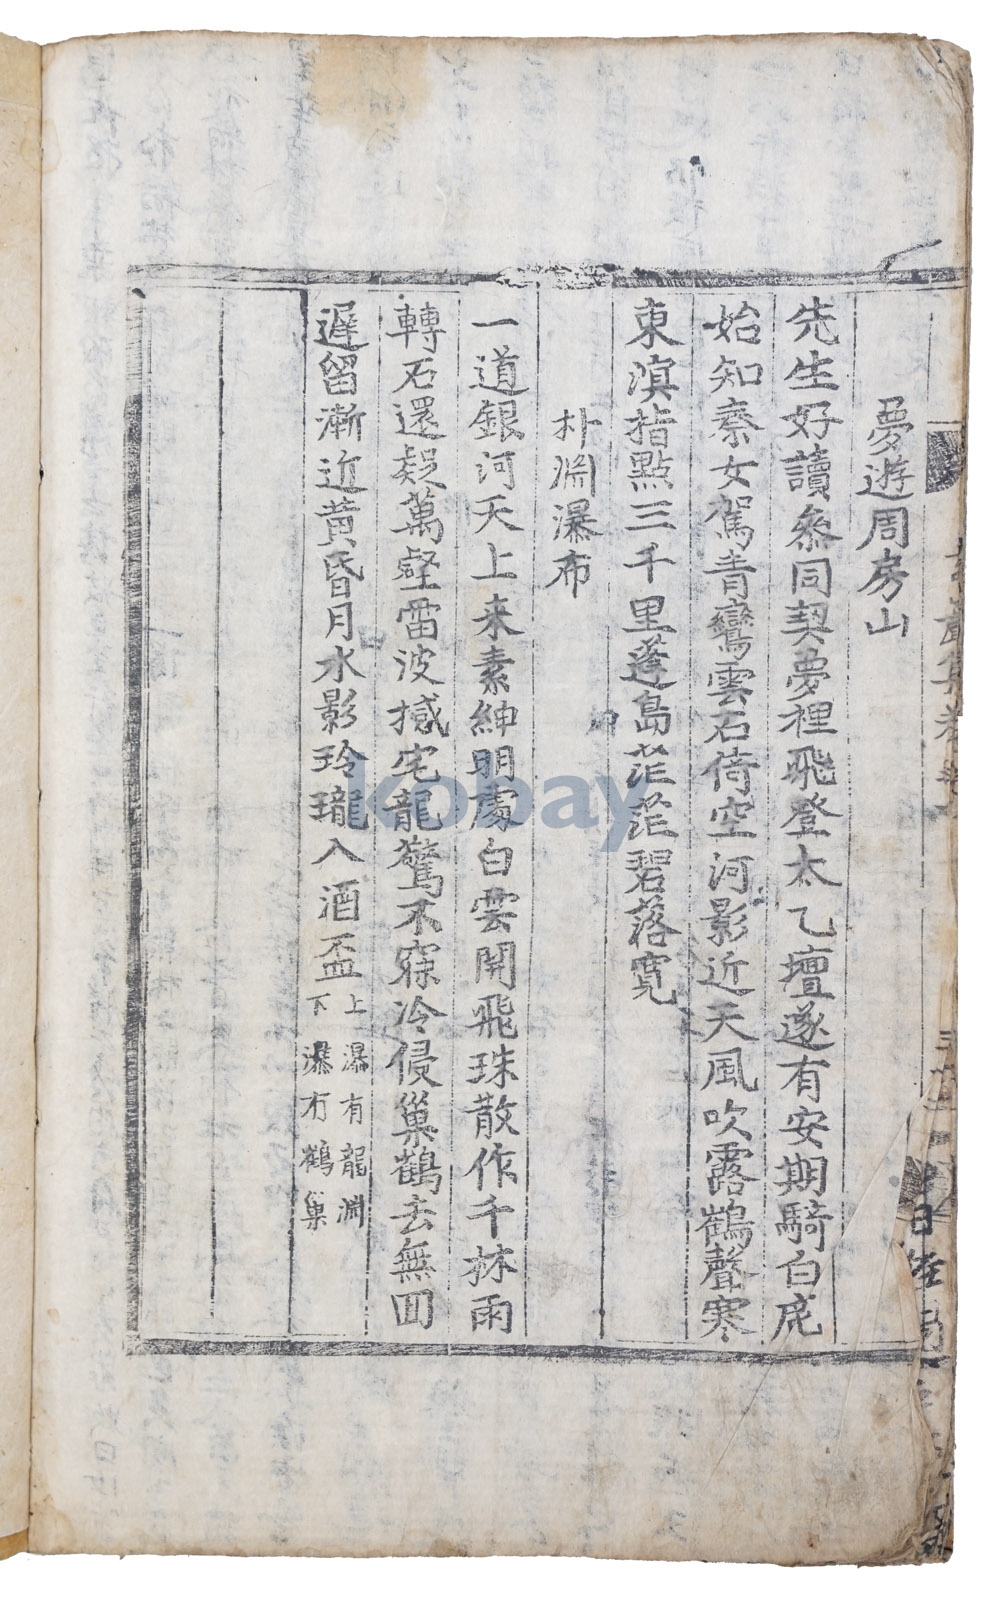 夢遊周房山
先生好讀叅同契夢裡飛登太乙壇遂有安期騎白鹿
始知秦女駕青鸞雲石倚空河影近天風吹露鶴聲寒
東溟指點三千里蓬島茫茫碧落寬
朴渊瀑布
一道銀河天上来素紳明處白雲開飛珠散作千林雨
轉石還疑萬壑雷波撼宅龍驚不寐冷侵巢鶴去無囬
遲留漸近黃昏月水影玲瓏入酒盃
上瀑有龍渊
下瀑有鶴巢
kobay